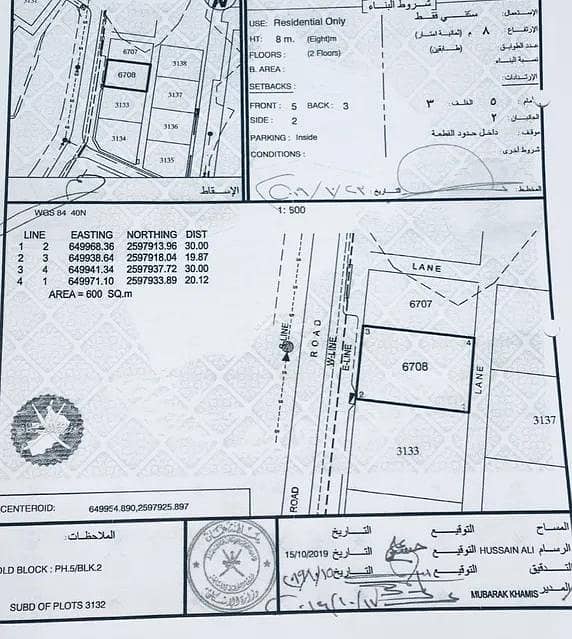 3131
N
6707
6708
3138
3133
3137
3134
3136
3135
الإسقاط
شروط البناء
USE: Residential Only
الإستعمال: سكني فقط
HT: 8 m. (Eight)m
الإرتفاع: ٨ م (ثمانية أمتار)
FLOORS : (2 Floors)
عدد الطوابق (طابقين)
B. AREA :
نسبة البناء
SETBACKS :
الإرتدادات:
FRONT : 5 BACK : 3
أمام: ٥ الخلف: ٣
SIDE : 2
الجانبان: ٢
PARKING : Inside
موقف: داخل حدود القطعة
CONDITIONS :
شروط اخرى
المخطط:
تاريخ
WGS 84 40N
1: 500
LINE EASTING NORTHING DIST
1 2 649968.36 2597913.96 30.00
2 3 649938.64 2597918.04 19.87
3 4 649941.34 2597937.72 30.00
4 1 649971.10 2597933.89 20.12
AREA = 600 SQ.m
LANE
6707
ROAD
W-LINE
E-LINE
3
4
6708
LANE
2
1
3137
3133
ROAD
CENTEROID: 649954.890,2597925.897
الملاحظات:
OLD BLOCK : PH.5/BLK.2
SUBD OF PLOTS 3132
المساح التوقيع التاريخ
الرسام HUSSAIN ALI التوقيع التاريخ 15/10/2019
التدقيق التوقيع التاريخ
المدير MUBARAK KHAMIS